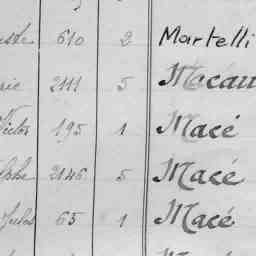 610 2 Martelli
2111 5 Macau
Victor 195 1 Macé
2146 5 Macé
Jules 65 1 Macé